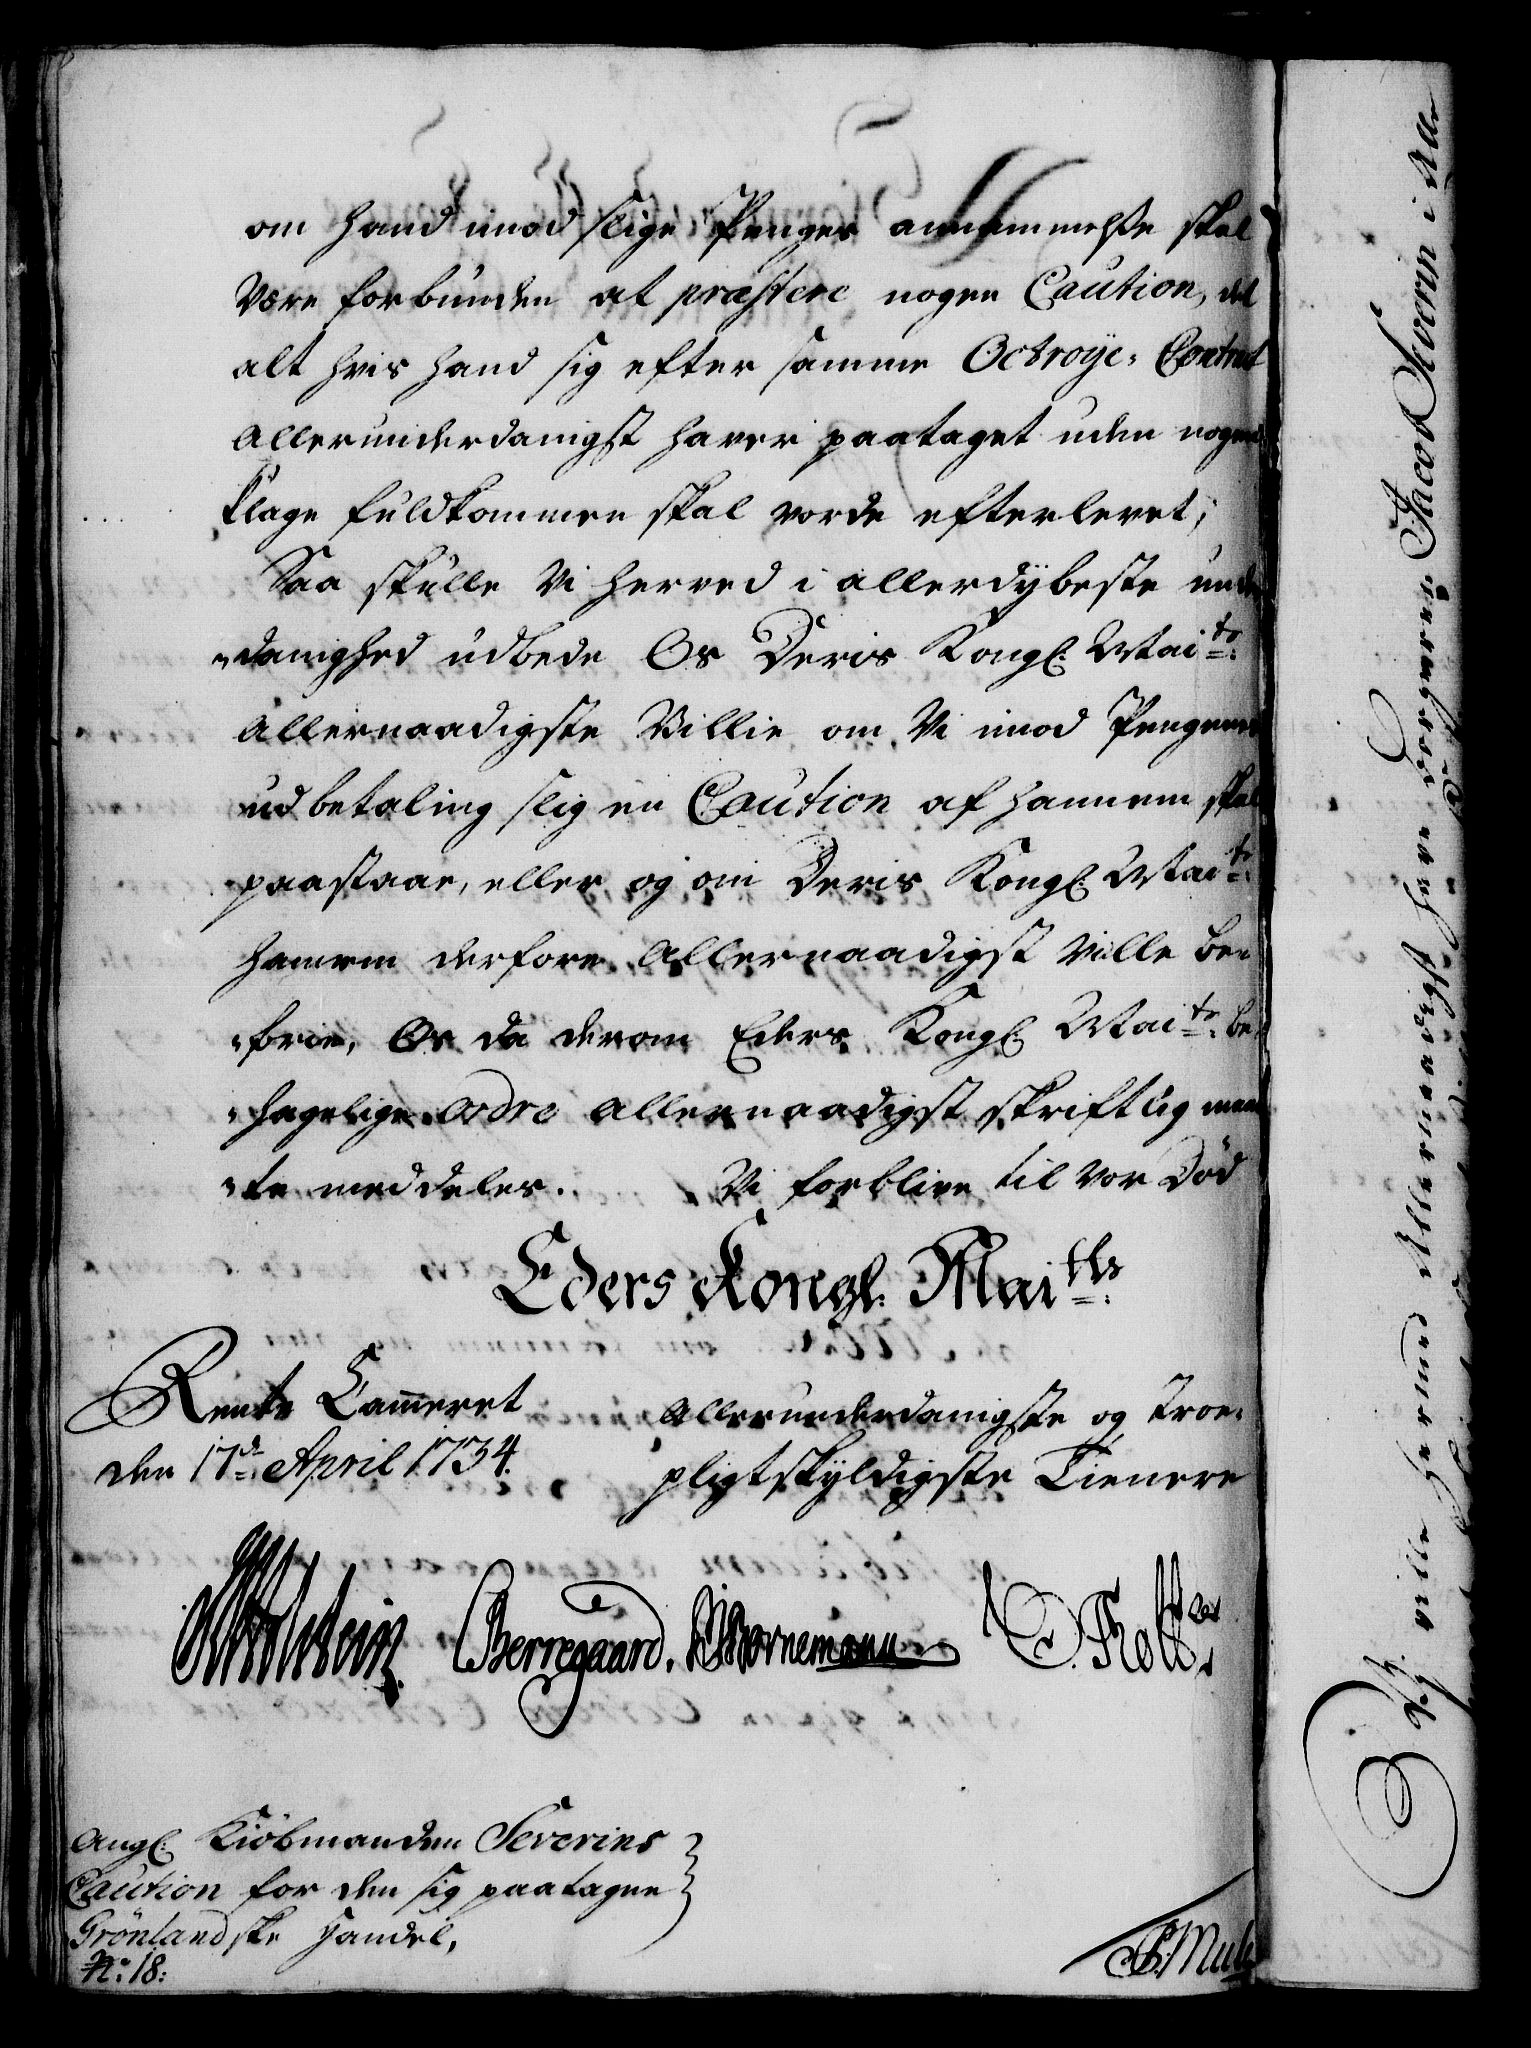 om hand imod slige Penges annammelse skal
være forbunden at præstere nogen Caution, at
alt hvis hand sig efter samme Octroye: Contract
allerunderdanigst haver paataget uden nogen
klage fuldkommen skal vorde efterlevet;
Saa skulle Vi herved i allerdybeste under
-danighed udbede Os Deris Kongl: Maits:
Allernaadigste Villie om Vi imod Pengenes
udbetaling slig en Caution af hannem skal
paastaae, eller og om Deris Kongl: Maits:
hannem derfore Allernaadigst Ville be-
-frie, Os da derom Eders Kongl: Maits: be-
-hagelige ordre Allernaadigst skriftlig maat-
-te meddeles. Vi forblive til vor Død
Eders Kongl: Maitts:
Rente Cammeret
den 17de April 1734.
Allerunderdanigste og troe-
pligtskyldigste Tienere
Holstein
CBerregaard. Bornemann
Angl: Kiøbmanden Severins
Caution for den sig paatagne
Grönlandske Handel,
No: 18:
ville herved Allernaadigst have Borgeren Jacob Severin i Aller